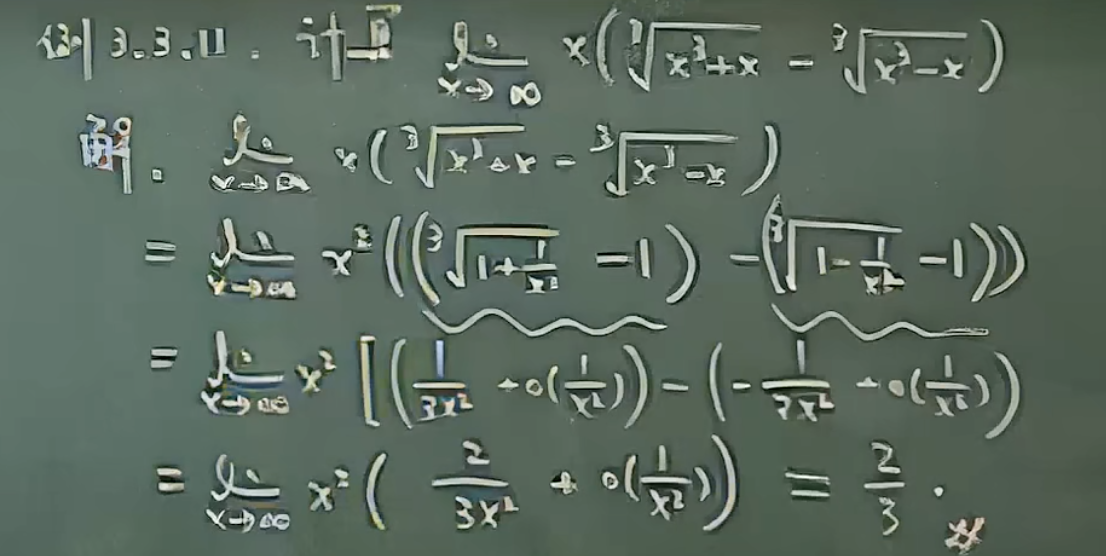 例 3.3.11. 计算 lim x→∞ x(∛(x³+x) - ∛(x³-x))
解. lim x→∞ x(∛(x³+x) - ∛(x³-x))
= lim x→∞ x²((∛(1+1/x²) -1) - (∛(1-1/x²) -1))
= lim x→∞ x²[(1/3x² + o(1/x²)) - (-1/3x² + o(1/x²))
= lim x→∞ x²(2/3x² + o(1/x²)) = 2/3. #